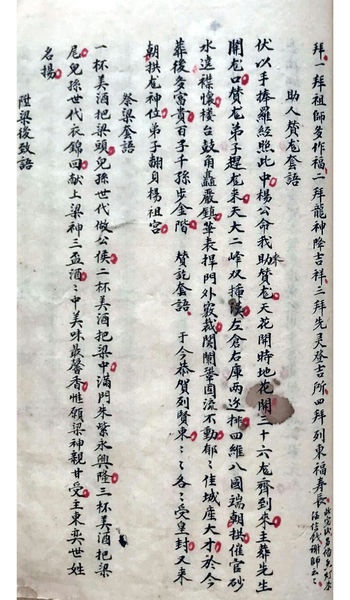 拜一拜祖師多作福二拜龍神降吉祥三拜先灵登吉所四拜列東福寿長
助人贊龙套語
伏以手捧羅經照此中楊公命我助來贊龙天花開時地花開三十六龙齊到來主葬先生
開龙口贊龙弟子趕龙來天大二峰双插漢左倉右庫两边排四維八國端朝拱催官砂
水遶襟懷楼台鼓角矗嚴鎮華表捍門外衮裁関闌鞏固流不動郁〻佳城座大才於今
葬後多富貴百子千孫步金階 贊訖套語 于今恭賀列賢東〻〻各〻受皇封又来
朝拱龙神位弟子翻貝楊祖宮
祭梁套語
一杯美酒把梁頭兒孫世代做公侯二杯美酒把梁中滿門朱紫永興隆三杯美酒把梁
尾兒孫世代衣錦回献上梁神三盃酒〻中美味最馨香惟願梁神親甘受主東奕世姓
名揚
陞梁後致語